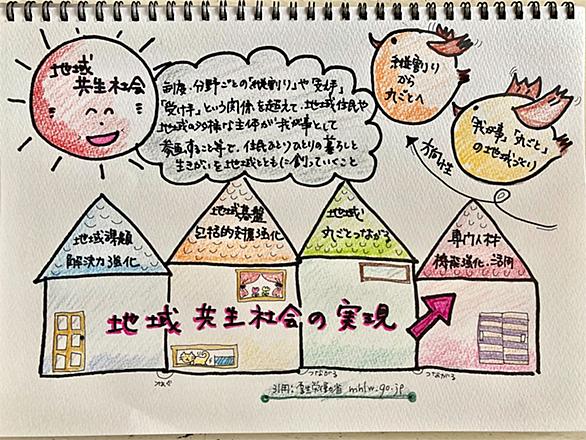 地域
共生社会
制度・分野ごとの「縦割り」や「支え手」
「受け手」という関係を超えて、地域住民や
地域の多様な主体が我が事として
参画すること等で、住民ひとりひとりの暮らしと
生きがいを地域とともに創っていくこと
縦割り
から
丸ごとへ
「我が事」「丸ごと」
の地域づくり
方向性
地域課題
解決力強化
地域基盤
包括的支援強化
地域
丸ごとつながる
専門人材
機能強化・活用
地域共生社会の実現
つなぐ
つながる
つながる
引用:厚生労働省 mhlw.go.jp